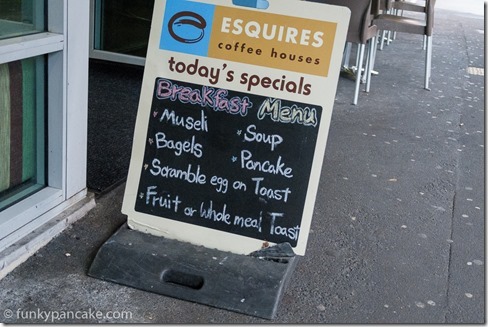 ESQUIRES
coffee houses
today's specials
Breakfast Menu
Museli
Soup
Bagels
Pancake
Scramble egg on Toast
Fruit or Whole meal Toast
© funkypancake.com